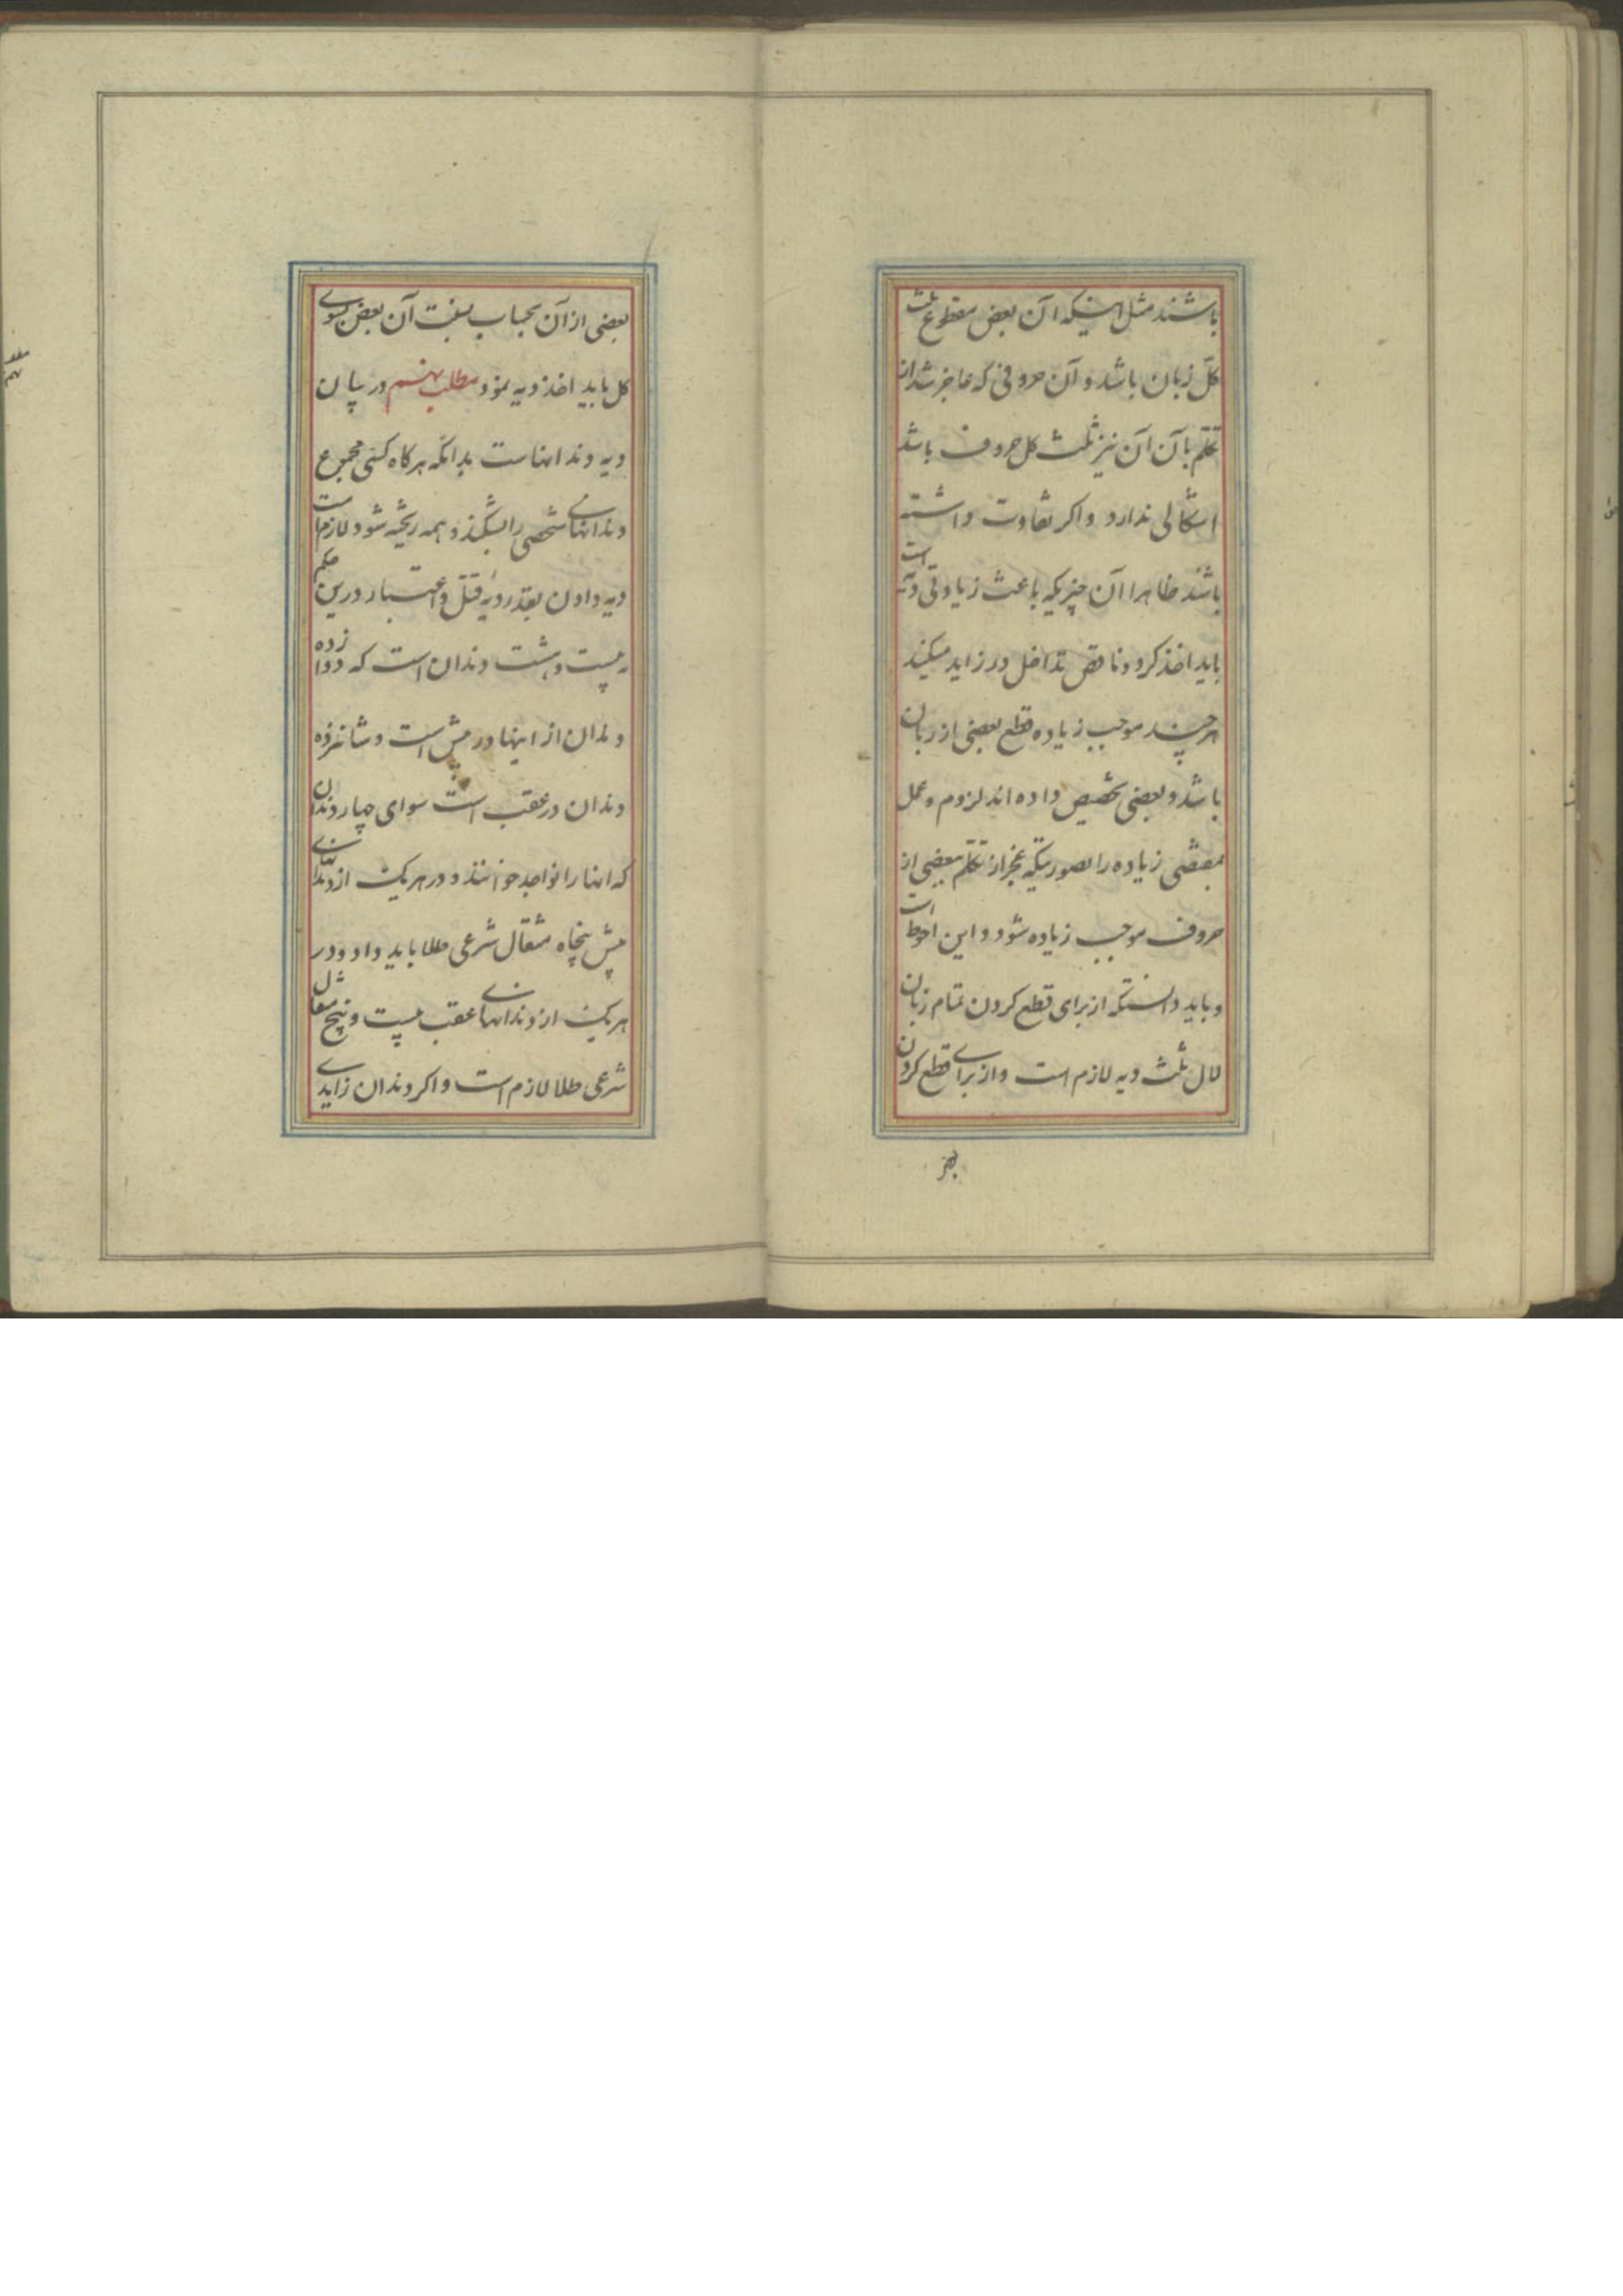 باشند مثل اینکه آن بعض مقطوع ثلث
کل زبان باشد و آن حروفی که عاجز شد از
تکلم بآن آن نیز ثلث کل حروف باشد
اشکالی ندارد و اکر تفاوت داشته
باشند ظاهرا آن چیزیکه باعث زیادتی دیه است
باید اخذ کرد و ناقص تداخل در زاید میکند
هر چند موجب زیاده قطع بعضی از زبان
باشد و بعضی تخصیص داده اند لزوم و عمل
بمقتضی زیاده را بصورتیکه عجز از تکلم ببعضی از
حروف موجب زیاده شود و این احوط است
و باید دانست که از برای قطع کردن تمام زبان
لال ثلث دیه لازم است و از برای قطع کردن
بعضی از آن بحساب نسبت آن بعض بسوی
کل باید اخذ دیه نمود مطلب نهم در بیان
دیه دندانهاست بدانکه هر کاه کسی مجموع
دندانهای شخصی را بشکند و همه ریخته شود لازم است
دیه دادن بقدر دیه قتل و اعتبار درین حکم
به بیست و هشت دندان است که دوازده
دندان از اینها در پیش است و شانزده
دندان در عقب است سوای چهار دندان
که انها را نواجد خوانند و در هر یک از دندانهای
پیش پنجاه مثقال شرعی طلا باید داد و در
هر یک از دندانهای عقب بیست و پنج مثقال
شرعی طلا لازم است و اکر دندان زایدی